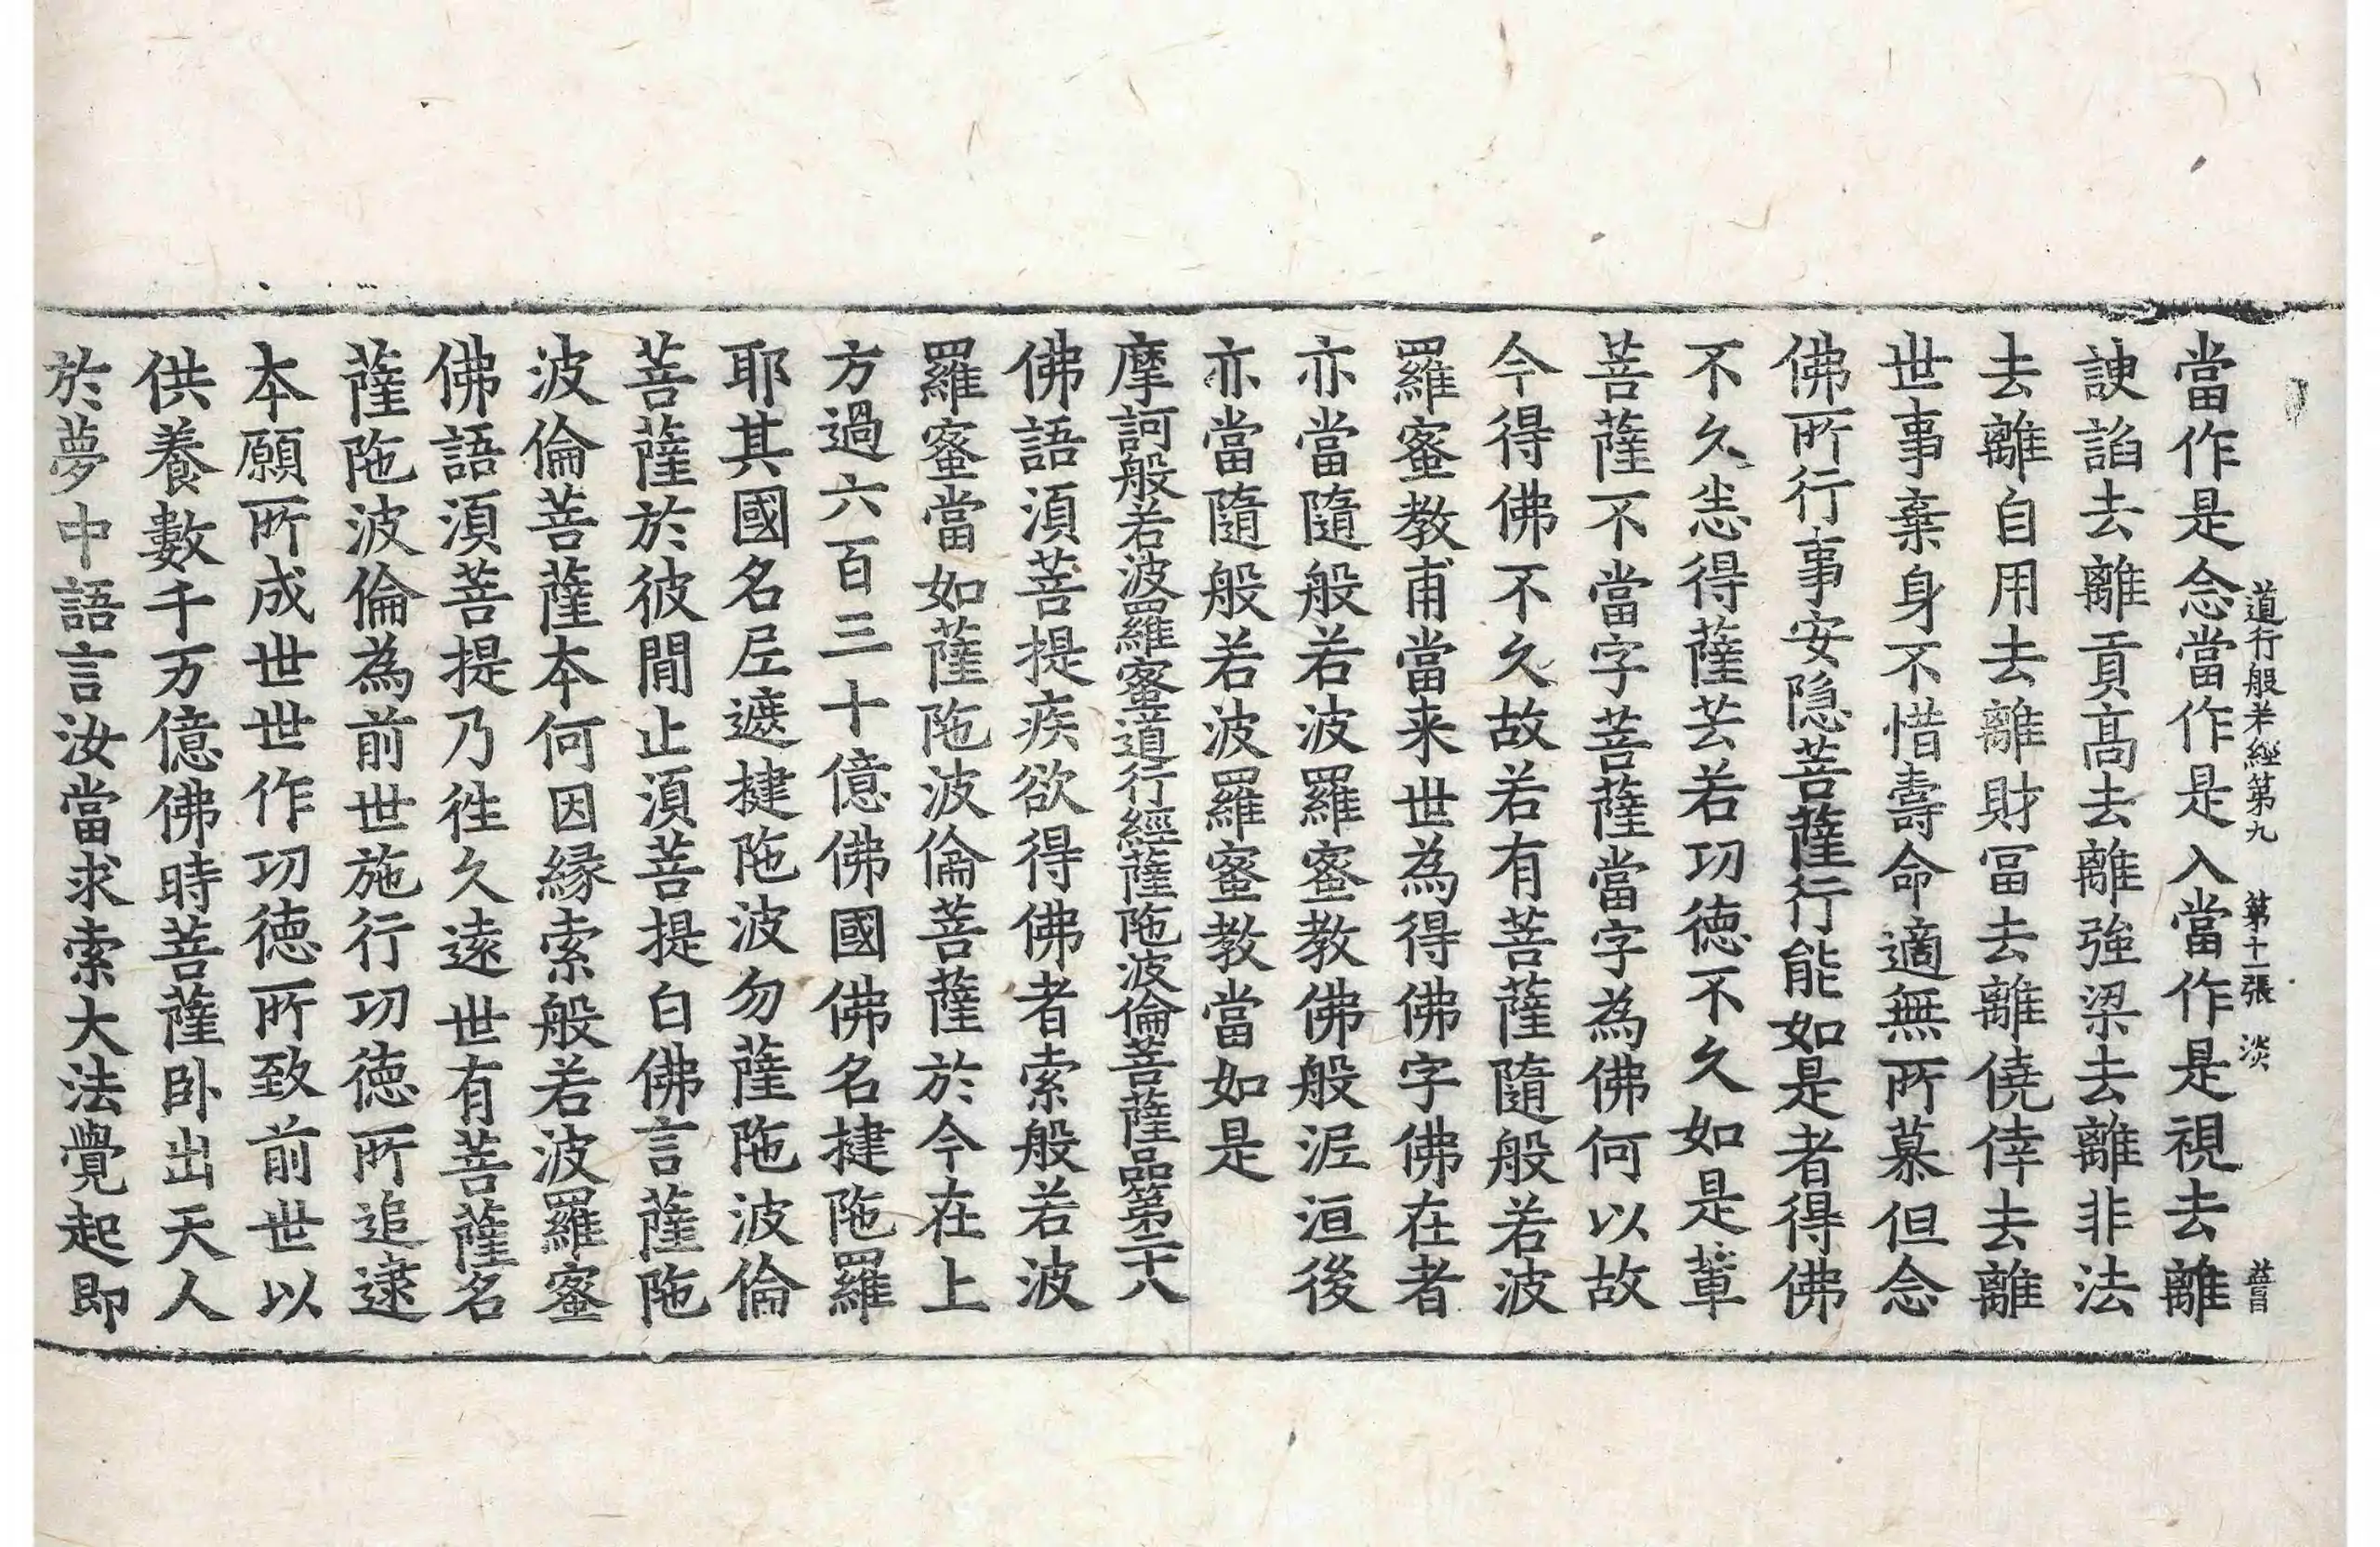 道行般若經第九 第十一張 淡
當作是念當作是入當作是視去離
諛諂去離貢高去離強梁去離非法
去離自用去離財冨去離僥倖去離
世事棄身不惜壽命適無所慕但念
佛所行事安隱菩薩行能如是者得佛
不久悉得薩芸若功德不久如是輩
菩薩不當字菩薩當字為佛何以故
今得佛不久故若有菩薩隨般若波
羅蜜教甫當来世為得佛字佛在者
亦當隨般若波羅蜜教佛般泥洹後
亦當隨般若波羅蜜教當如是
摩訶般若波羅蜜道行經薩陁波倫菩薩品第二十八
佛語須菩提疾欲得佛者索般若波
羅蜜當如薩陁波倫菩薩於今在上
方過六百三十億佛國佛名揵陁羅
耶其國名尼遮揵陁波勿薩陁波倫
菩薩於彼間止須菩提白佛言薩陁
波倫菩薩本何因緣索般若波羅蜜
佛語須菩提乃徃久遠世有菩薩名
薩陁波倫為前世施行功德所追逮
本願所成世世作功德所致前世以
供養數千万億佛時菩薩卧出天人
於夢中語言汝當求索大法覺起即